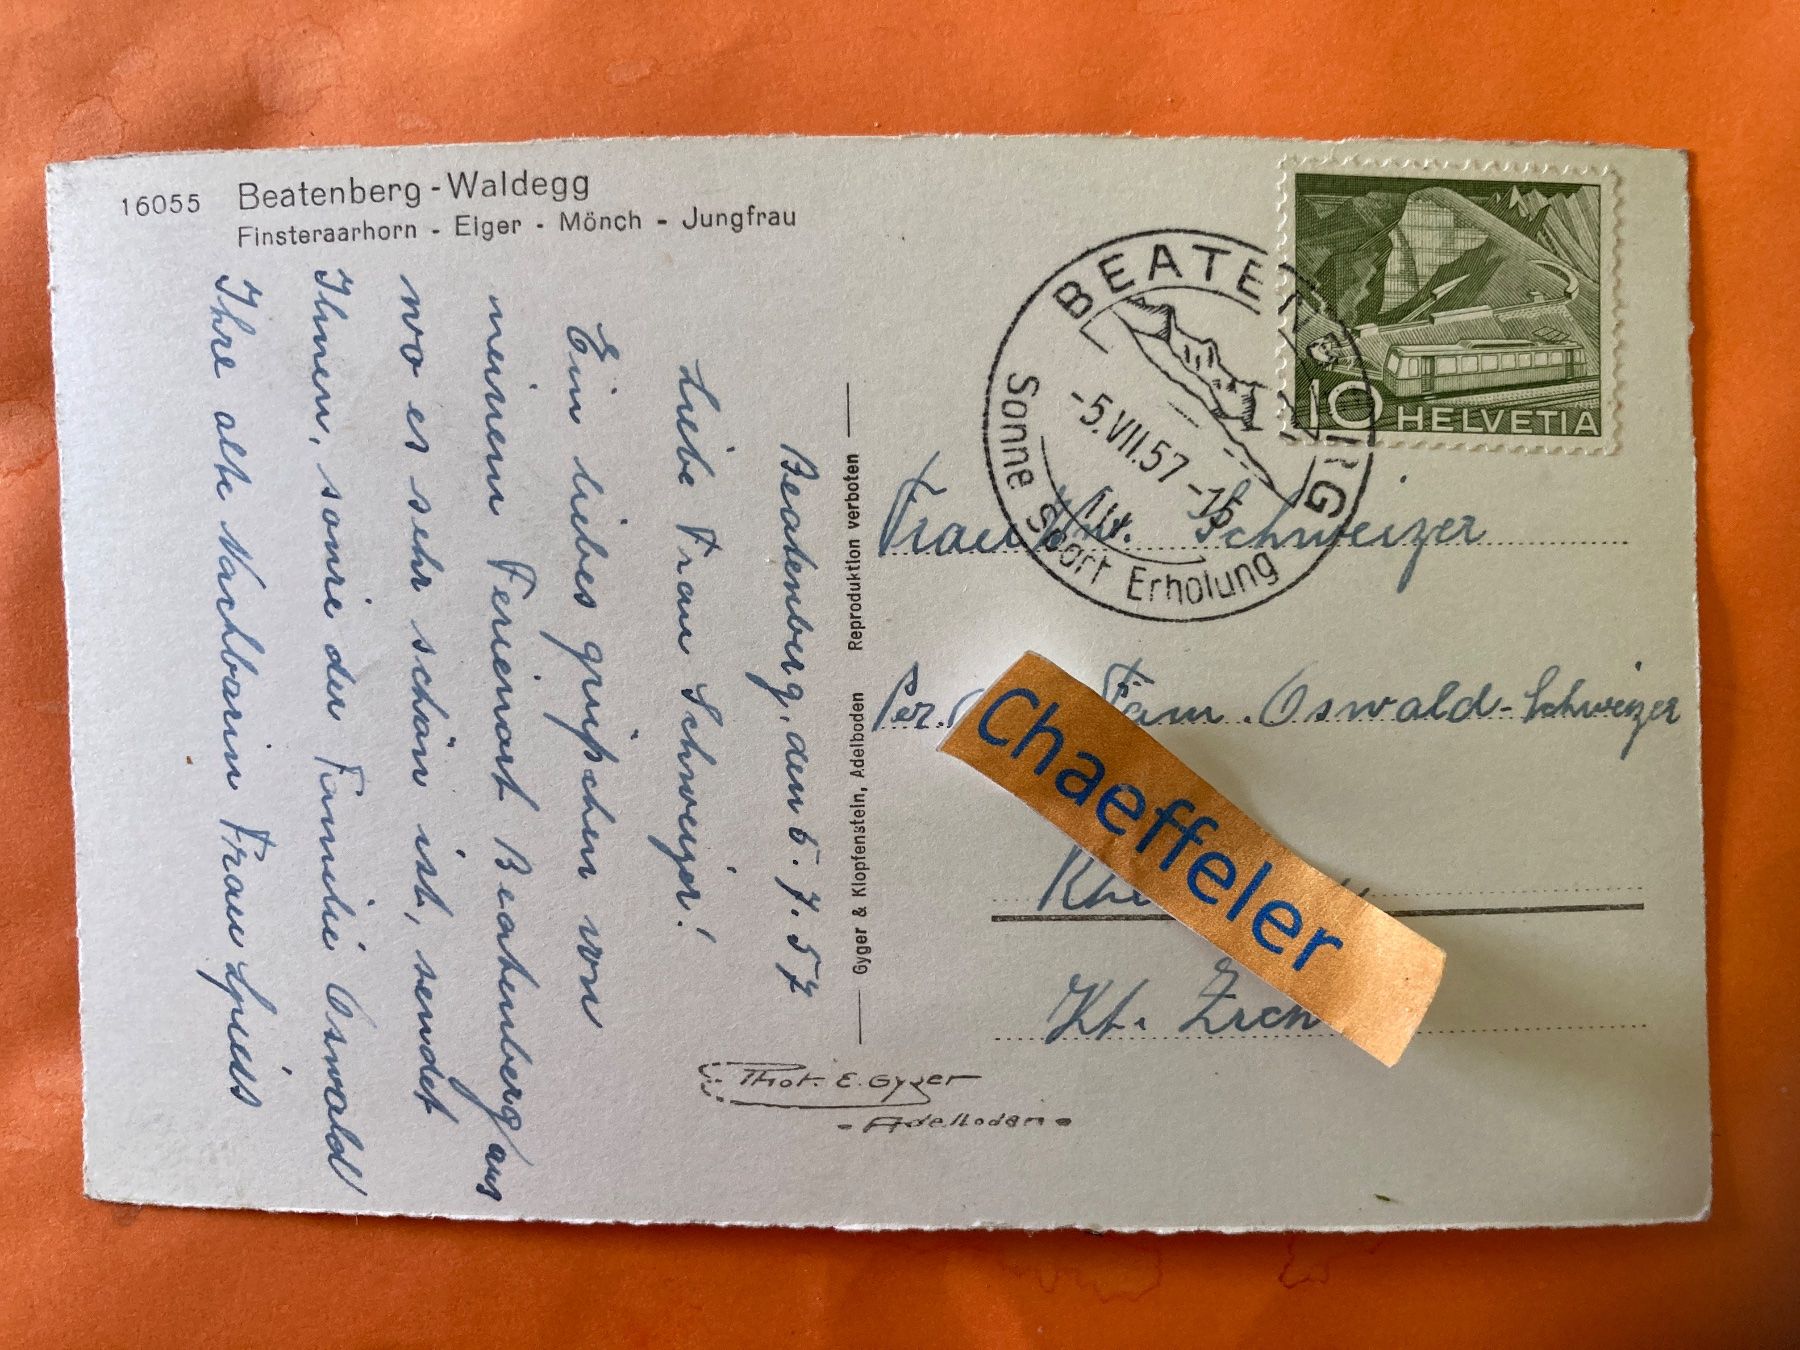 16055 Beatenberg - Waldegg
Finsteraarhorn - Eiger - Mönch - Jungfrau
Beatenberg, den 5. 7. 57
Liebe Frau Schweizer!
Ein liebes grüßchen von
meinem Ferienort Beatenberg aus
wo es sehr schön ist, sendet
Ihnen, sowie der Familie Oswald
Ihre alte Nachbarin Frau Spiess
Gyger & Klopfenstein, Adelboden Reproduktion verboten
Phot. E. Gyger
- Adelboden -
BEATENBERG
-5.VII.57-15
Sonne Sport Erholung
10 HELVETIA
Frau Schweizer
Per. Fam. Oswald-Schweizer
Chaeffeler
Kt.